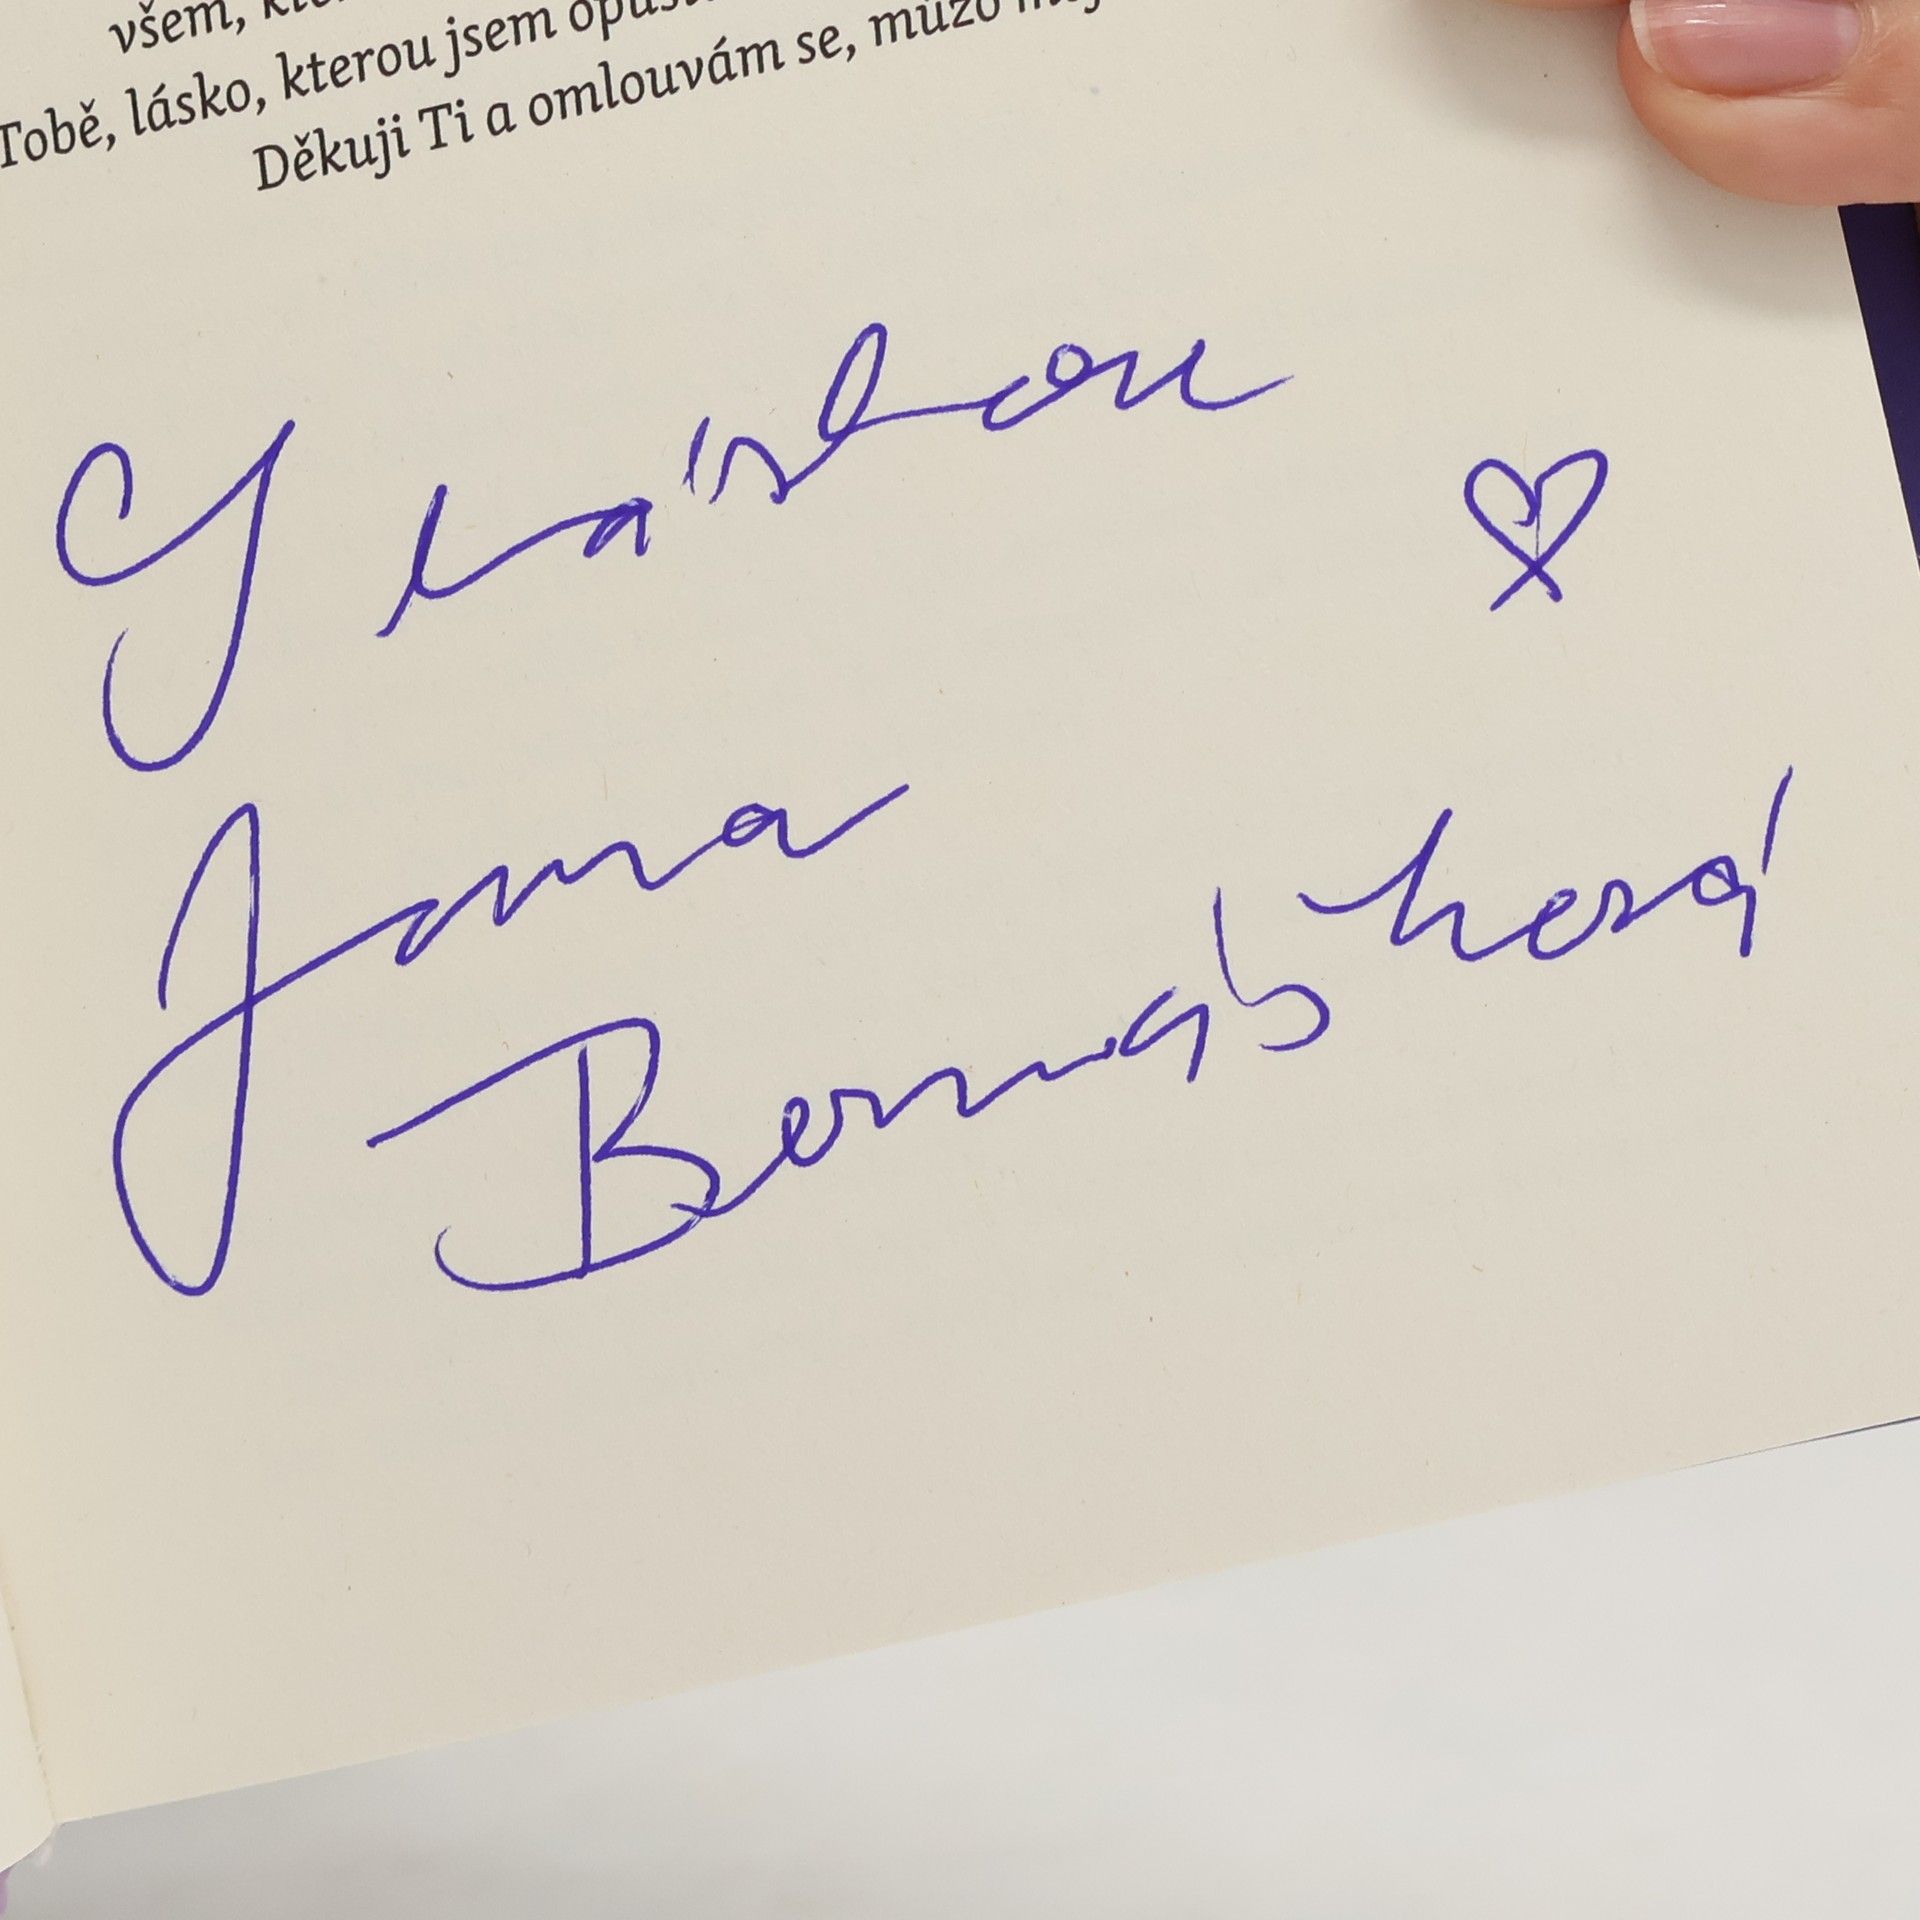 všem,
Tobě, lásko, kterou jsem
Děkuji Ti a omlouvám se, můžo
S láskou
Jana
Bernášková